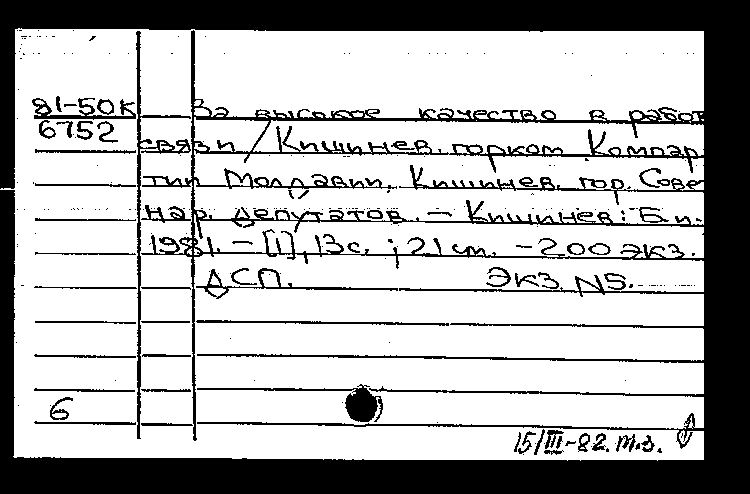 81-50К За высокое качество в работ
6752 связи / Кишинев. горком Компар-
тии Молдавии, Кишинев. гор. Сове
нар. депутатов. — Кишинев: Б.и.
1981. – [1], 13с. ; 21 см. – 200 экз.
ДСП. Экз. N5.
6
15/III-82. т.з.